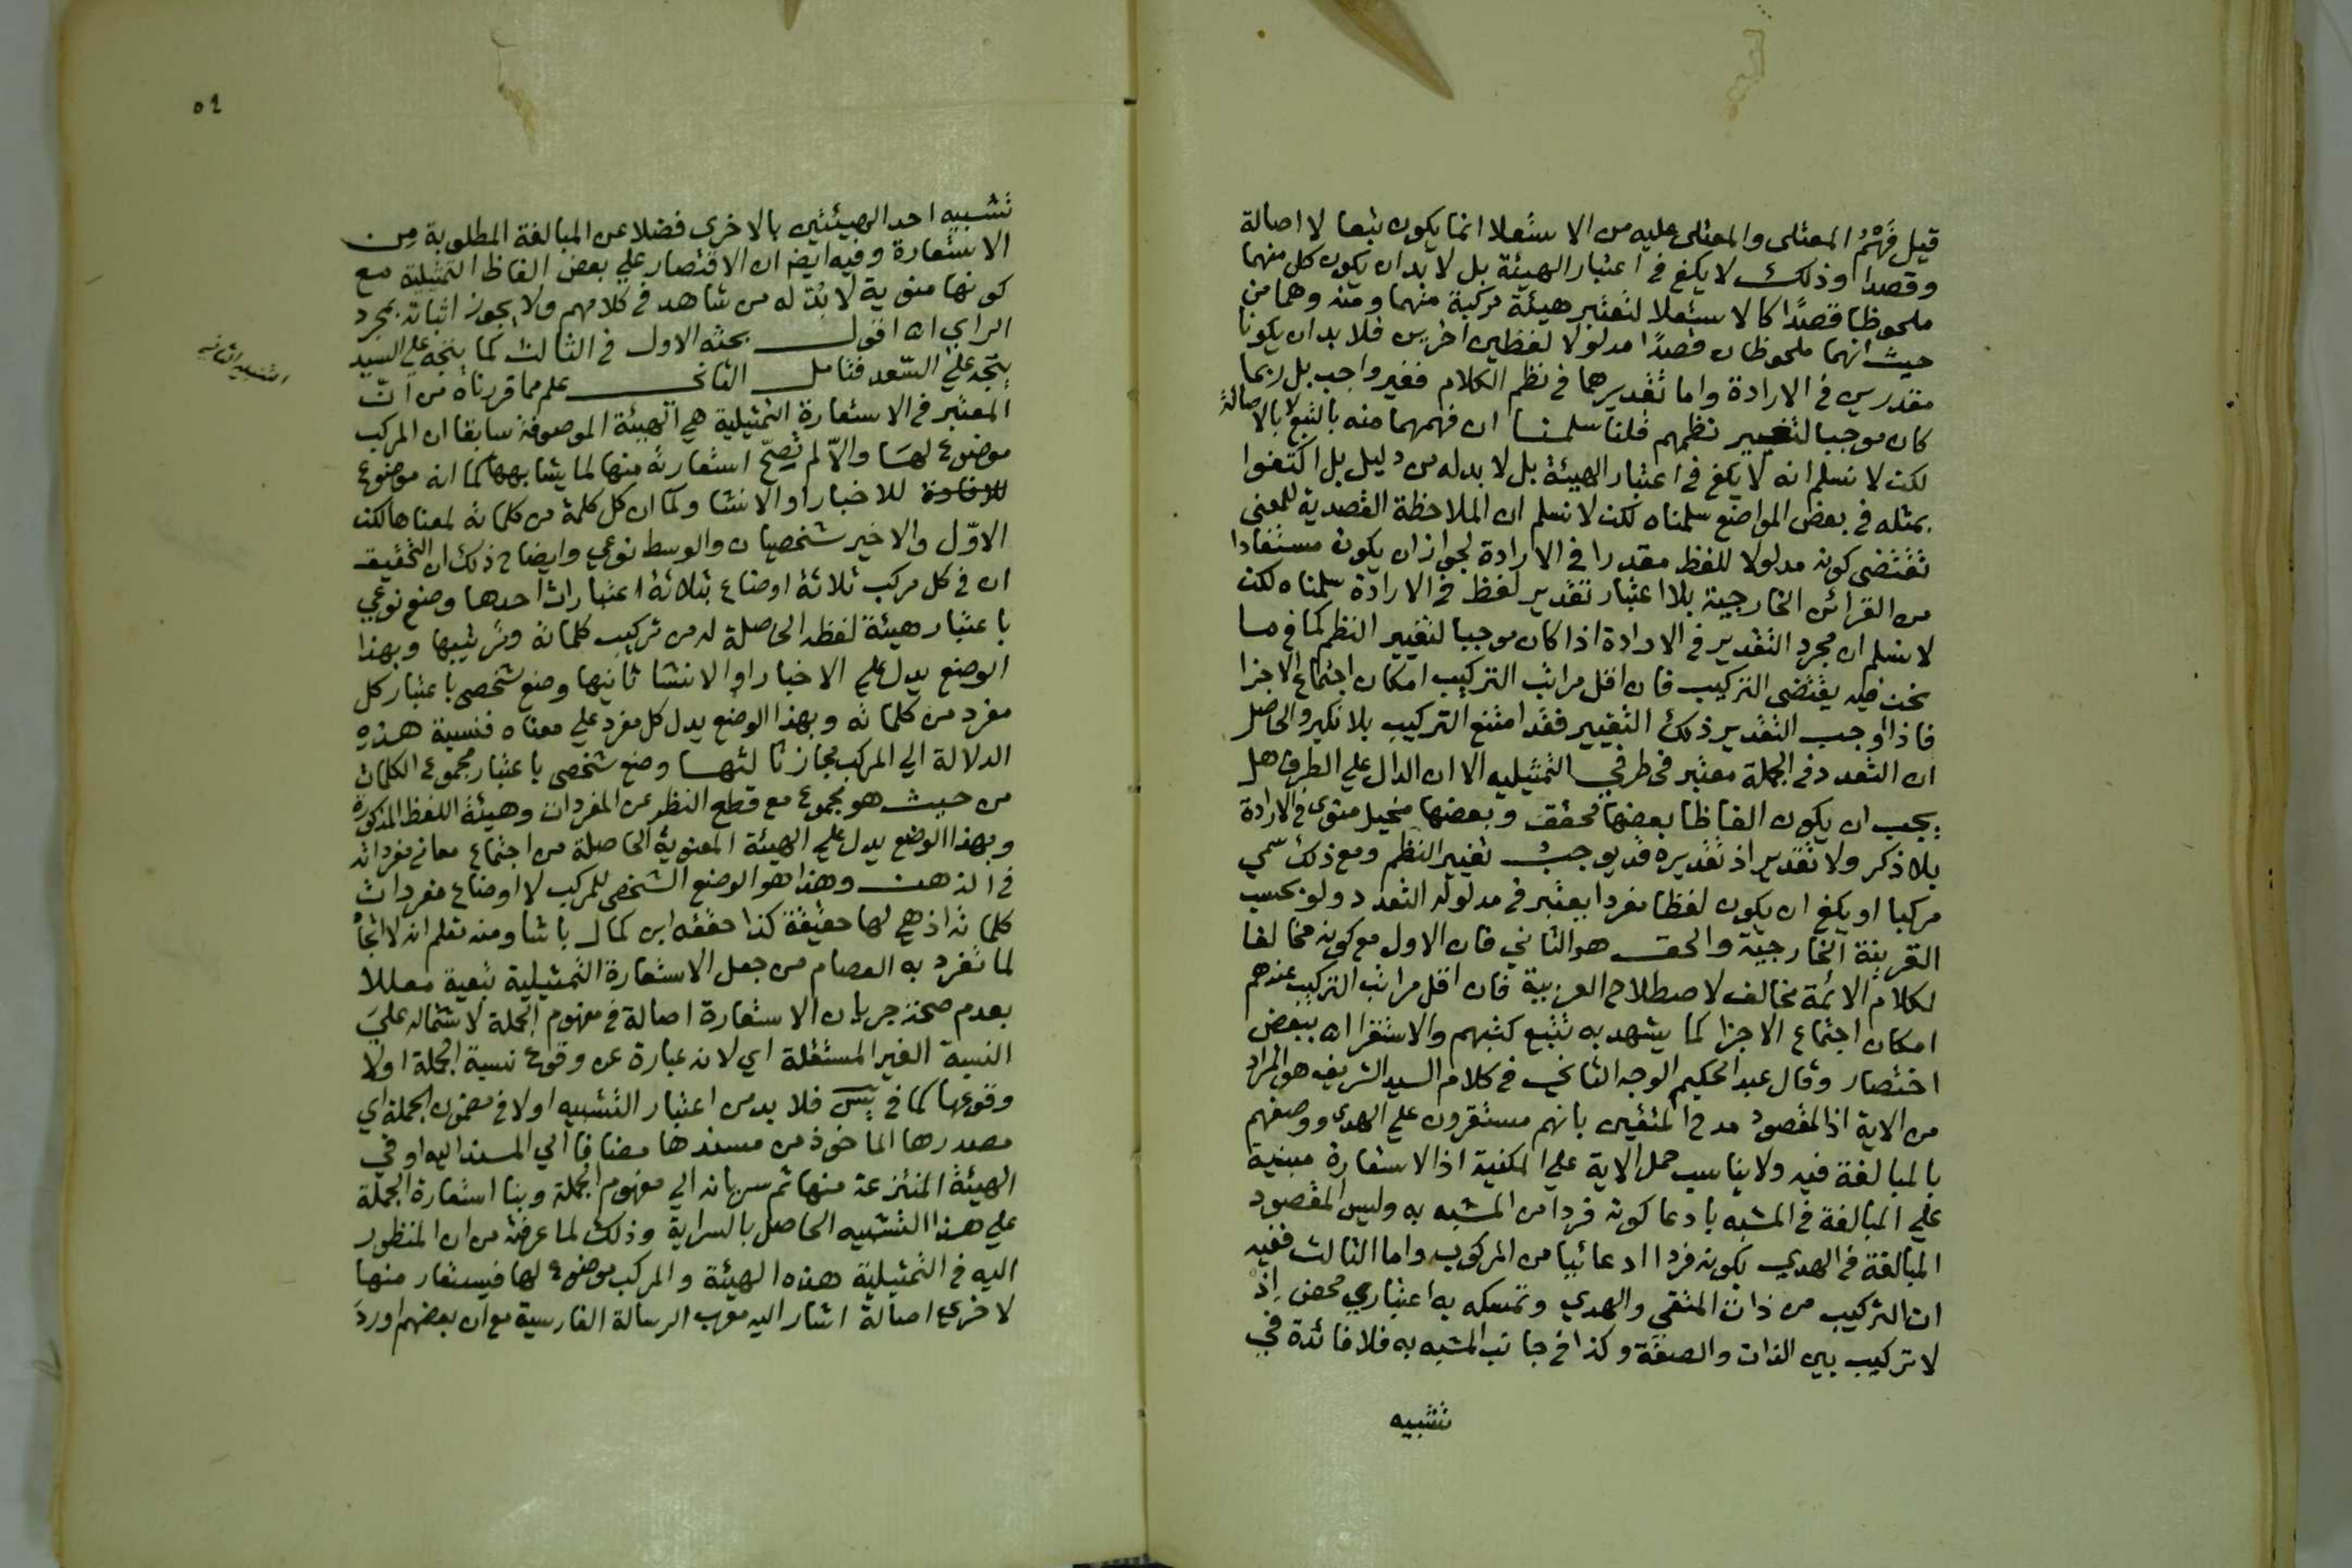 قيل فَهْمُ المعتلى والمعتلى عليه من الاستعلا انما يكون تبعا لا اصالة
وقصدا وذلك لا يكفي في اعتبار الهيئة بل لا بد ان يكون كل منهما
ملحوظا قصدًا كالاستعلا لتعتبر هيئة مركبة منهما ومنه وهما من
حيث انهما ملحوظان قصدًا مدلولا لفظين اخرين فلا بد ان يكونا
مقدرين في الارادة واما تقديرهما في نظم الكلام فغير واجب بل ربما
كان موجبا لتغيير نظمهم قلنا سلمنا ان فهمهما منه بالتبع لا بالاصالة
لكن لا نسلم انه لا يكفي في اعتبار الهيئة بل لا بد له من دليل بل اكتفوا
بمثله في بعض المواضع سلمناه لكن لا نسلم ان الملاحظة القصدية للمعنى
تقتضى كونه مدلولا للفظ مقدرا في الارادة لجواز ان يكون مستفادا
من القرائن الخارجية بلا اعتبار تقدير لفظ في الارادة سلمناه لكن
لا نسلم ان مجرد التقدير في الارادة اذا كان موجبا لتغيير النظم كما في ما
نحن فيه يقتضى التركيب فان اقل مراتب التركيب امكان اجتماع الاجزا
فاذا اوجب التقدير ذلك التغيير فقد امتنع التركيب بلا نكير والحاصل
ان التعدد في الجملة معتبر في طرفي التمثيليه الا ان الدال على الطرف هل
يجب ان يكون الفاظا بعضها محقق وبعضها مخيل منوى في الارادة
بلا ذكر ولا تقدير اذ تقديره قد يوجب تغيير النظم ومع ذلك سمى
مركبا او يكفي ان يكون لفظا مفردا يعتبر في مدلوله التعدد ولو بحسب
القرينة الخارجية والحق هو الثاني فان الاول مع كونه مخالفا
لكلام الائمة مخالف لاصطلاح العربية فان اقل مراتب التركيب عندهم
امكان اجتماع الاجزا كما يشهد به تتبع كتبهم والاستقرا اه ببعض
اختصار وقال عبد الحكيم الوجه الثاني في كلام السيد الشريف هو المراد
من الاية اذ المقصود مدح المتقين بانهم مستقرون على الهدى ووصفهم
بالمبالغة فيه ولا يناسب حمل الاية على المكنية اذ الاستعارة مبنية
على المبالغة في المشبه بادعا كونه فردا من المشبه به وليس المقصود
المبالغة في الهدي بكونه فردا ادعائيا من المركوب واما الثالث ففيه
ان التركيب من ذات المتقى والهدي وتمسكه به اعتباري محض إذ
لا تركيب بين الذات والصفة وكذا في جانب المشبه به فلا فائدة في
تشبيه
٥١
تشبيه احد الهيئتين بالاخرى فضلا عن المبالغة المطلوبة من
الاستعارة وفيه ايضا ان الاقتصار على بعض الفاظ التمثيلية مع
كونها منوية لا بُدّ له من شاهد في كلامهم ولا يجوز اثباته بمجرد
الراي اه اقول بحثه الاول في الثالث كما يتجه على السيد
يتجه على السّعد فتامل الثاني علم مما قررناه من انّ
المعتبر في الاستعارة التمثيلية هي الهيئة الموصوفة سابقا ان المركب
موضوع لها والّا لم تصحّ استعارته منها لما يشابهها كما انه موضوع
للاخبار او الانشا وكما ان كل كلمة من كلماته لمعناها لكن
الاوّل والاخير شخصيان والوسط نوعي وايضاح ذلك ان التحقيق
ان في كل مركب ثلاثة اوضاع بثلاثة اعتبارات احدها وضع نوعي
باعتبار هيئة لفظه الحاصلة له من تركيب كلماته وترتيبها وبهذا
الوضع يدل على الاخبار او الانشا ثانيها وضع شخصى باعتبار كل
مفرد من كلماته وبهذا الوضع يدل كل مفرد على معناه فنسبة هذه
الدلالة الى المركب مجاز ثالثها وضع شخصى باعتبار مجموع الكلمات
من حيث هو مجموع مع قطع النظر عن المفردات وهيئة اللفظ المذكورة
وبهذا الوضع يدل على الهيئة المعنوية الحاصلة من اجتماع معانى مفرداته
في الذهن وهذا هو الوضع الشخصى للمركب لا اوضاع مفردات
كلماته اذ هي لها حقيقة كذا حققه ابن كمال باشا ومنه تعلم انه لا اتجاه
لما تفرد به العصام من جعل الاستعارة التمثيلية تبعية معللا
بعدم صحة جريان الاستعارة اصالة في مفهوم الجملة لاشتماله على
النسبة الغير المستقلة اي لانه عبارة عن وقوع نسبة الجملة اولا
وقوعها كما في يٓسٓ فلا بد من اعتبار التشبيه اولا في مضمون الجملة اي
مصدرها الماخوذ من مسندها مضافا الى المسند اليه او في
الهيئة المنتزعة منها ثم سريانه الى مفهوم الجملة وبنا استعارة الجملة
على هذا التشبيه الحاصل بالسراية وذلك لما عرفته من ان المنظور
اليه في التمثيلية هذه الهيئة والمركب موضوع لها فيستعار منها
لاخرى اصالة اشار اليه معرب الرسالة الفارسية مع ان بعضهم اورد